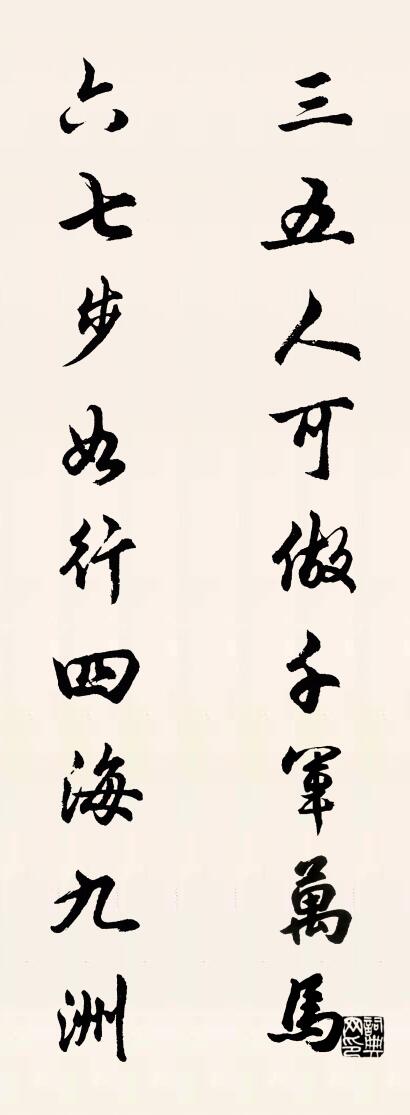 三五人可做千軍萬馬
六七步如行四海九洲
詞典